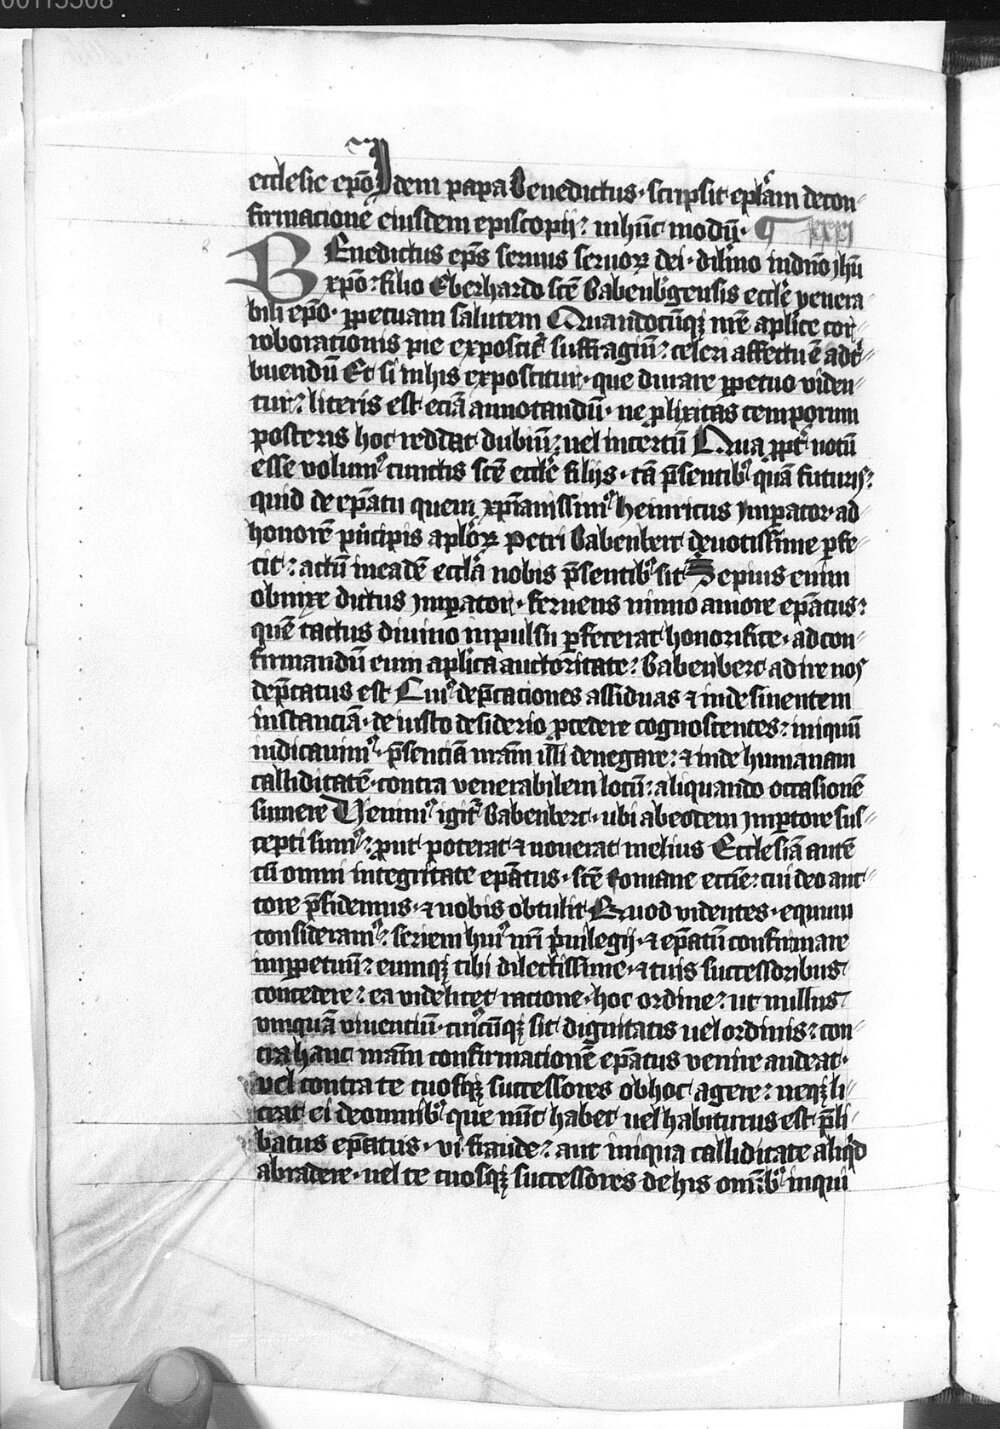 00115508
ecclesie ep̄o Idem papa Benedictus· scripsit ep̄lam decon⸗
firmacione eiusdem episcopij: inhūc modū· ¶ XXXI
BEnedictus ep̄s seruus seruoꝝ dei· dilc̄o indn̄o jhū
xp̄o: filio Eberhardo sc̄e Babenbgensis eccl̄e venera
bili ep̄o· ꝑpetuam salutem Quandocūqꝫ nr̄e aplice cor⸗
roborationis pie exposcit᷑ suffragiū: celeri affectu ē adt⸗
buendū Et si inhis exposcitur· que durare ꝑpetuo viden⸗
tur: literis est eciā annotandū· ne ꝓlixitas temporum
posteris hoc reddat dubiū: uel incertū Qua ꝓpt᷑ notū
esse volumꝰ cunctis sc̄e eccl̄e filijs· tā p̄sentibꝰ quā futuris:
quid de ep̄atu quem xp̄ianissimꝰ Heinricus Imꝑator· ad
honorē pⁱncipis aploꝝ Petri Babenberc deuotissime ꝑfe
cit: actū ineadē eccl̄a nobis p̄sentibꝰ sit Sepius enim
obnixe dictus Imꝑator· feruens nimio amore ep̄atus:
quē tactus diuino inpulsu ꝑfecerat honorifice· adcon⸗
firmandū eum aplica auctoritate: Babenberc adire nos
dep̄catus est Cuiꝰ dep̄cationes assiduas ⁊ inde sinentem
instanciā· de iusto desiderio ꝓcedere cognoscentes: iniquū
iudicauimꝰ· p̄senciā nr̄am illi denegare: ⁊ inde humanam
calliditatē· contra venerabilem locū: aliquando occasionē
sumere Venimꝰ igit᷑ Babenberc· ubi abeodem Imꝑtore sus⸗
cepti sumꝰ: ꝓut poterat ⁊ nouerat melius Ecclesiā autē
cū omni integritate ep̄atus· sc̄e Romane eccl̄ie: cui deo auc⸗
tore p̄sidemus· ⁊ nobis obtulit Quod videntes· equum
consideramꝰ: seriem huiꝰ nr̄i pⁱuilegij· ⁊ ep̄atū confirmare
inꝑpetuū: eumqꝫ tibi dilectissime· ⁊ tuis successoribus
concedere: ea videlicet racione· hoc ordine: ut nullus
vnquā viuentiū· cuiꝰcūqꝫ sit dignitatis uel ordinis: con⸗
tra hanc nr̄am confirmationē ep̄atus venire audeat·
vel contra te tuosqꝫ successores obhoc agere: neqꝫ li⸗
ceat ei deomnibꝰ que nūc habet uel habiturus est p̄li⸗
batus ep̄atus· vi fraude: aut iniqua calliditate aliqⁱd
abradere· uel te tuosqꝫ successores dehis omībꝰ inqui